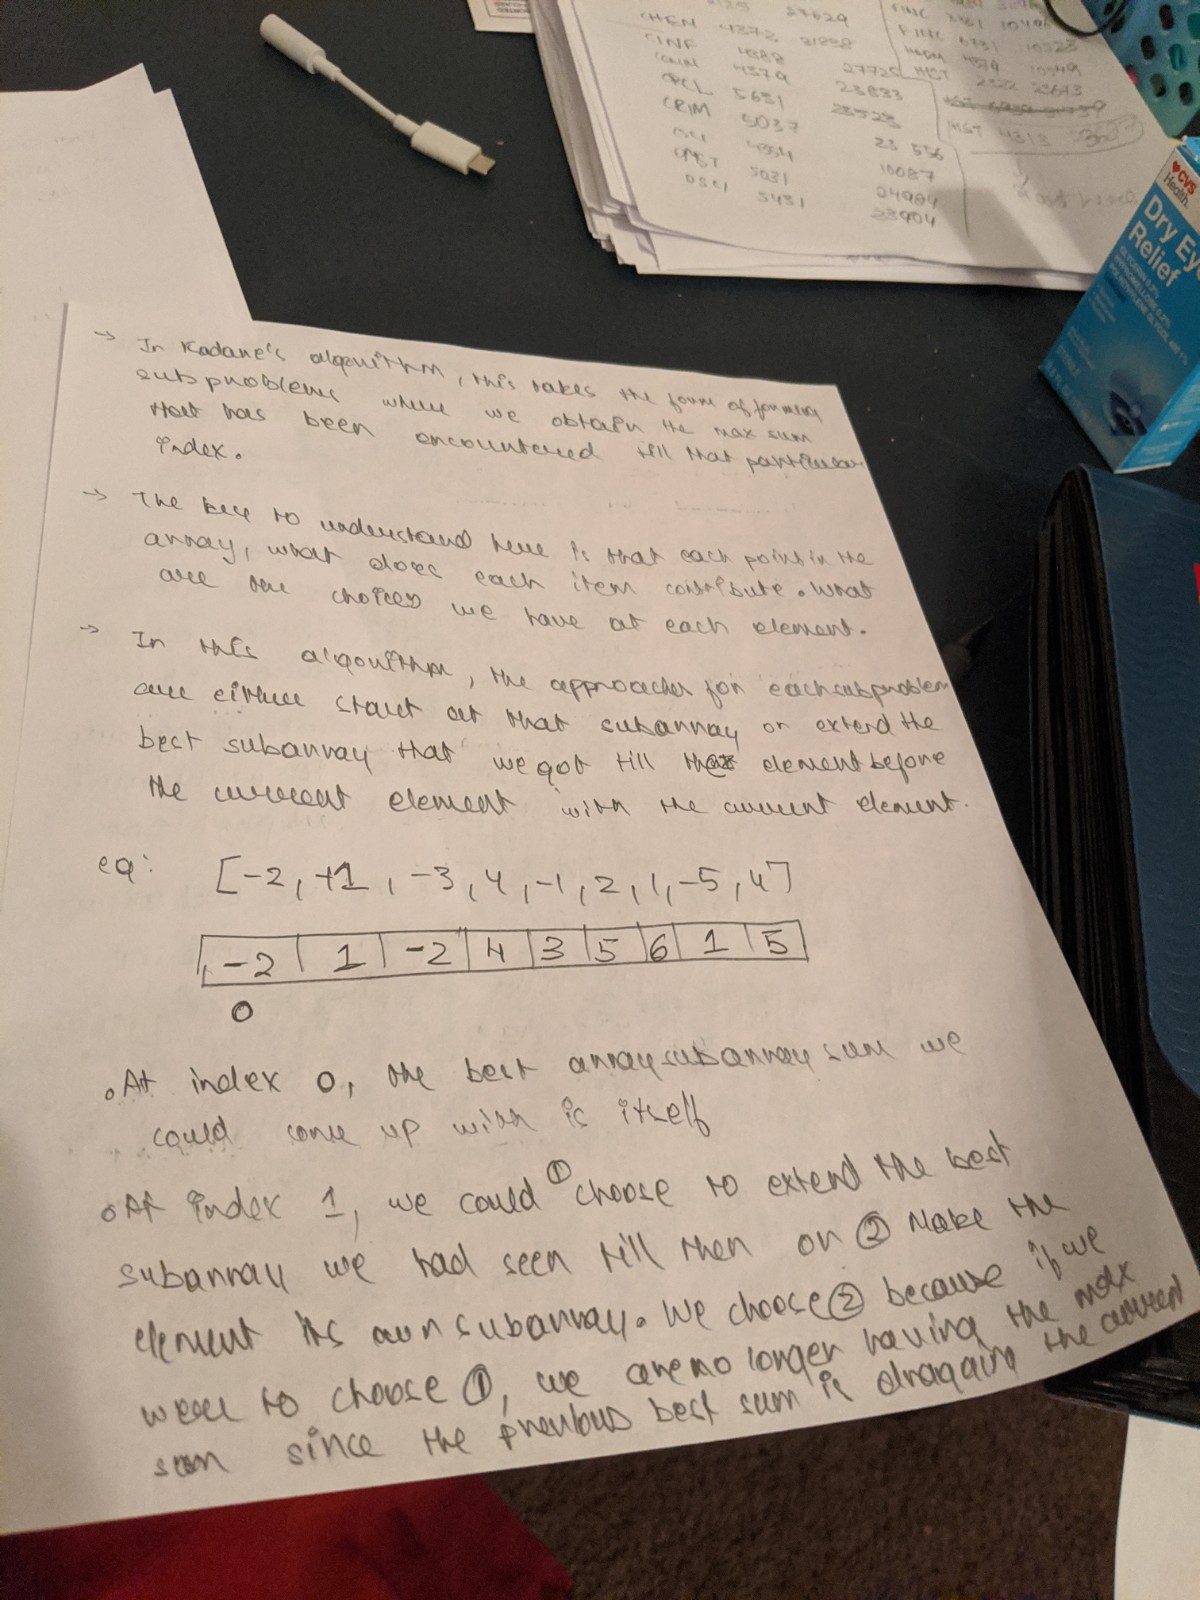 CHEM 4373 31838
CINF 4388
4379 27725
PCL 5651 23833
CRIM 5037 23523
4354 23 556
5031 10087
5451 24984
23904
FINC
MGMT 4374 10549
MST 4313
CVS
Health.
Dry Ey
Relief
→ In Kadane's algorithm, this takes the form of forming
subproblems where we obtain the max sum
that has been encountered till that particular
index.
→ The key to understand here is that each point in the
array, what does each item contribute. What
are the choices we have at each element.
→ In this algorithm, the approaches for each subproblem
are either start at that subarray or extend the
best subarray that we got till that element before
the current element with the current element.
eg: [-2, +1, -3, 4, -1, 2, 1, -5, 4]
-2 | 1 | -2 | 4 | 3 | 5 | 6 | 1 | 5
0
• At index 0, the best array subarray sum we
could come up with is itself
• At index 1, we could ① choose to extend the best
subarray we had seen till then or ② Make the
element its own subarray. We choose ② because if we
were to choose ①, we are no longer having the max
sum since the previous best sum is dragging the current